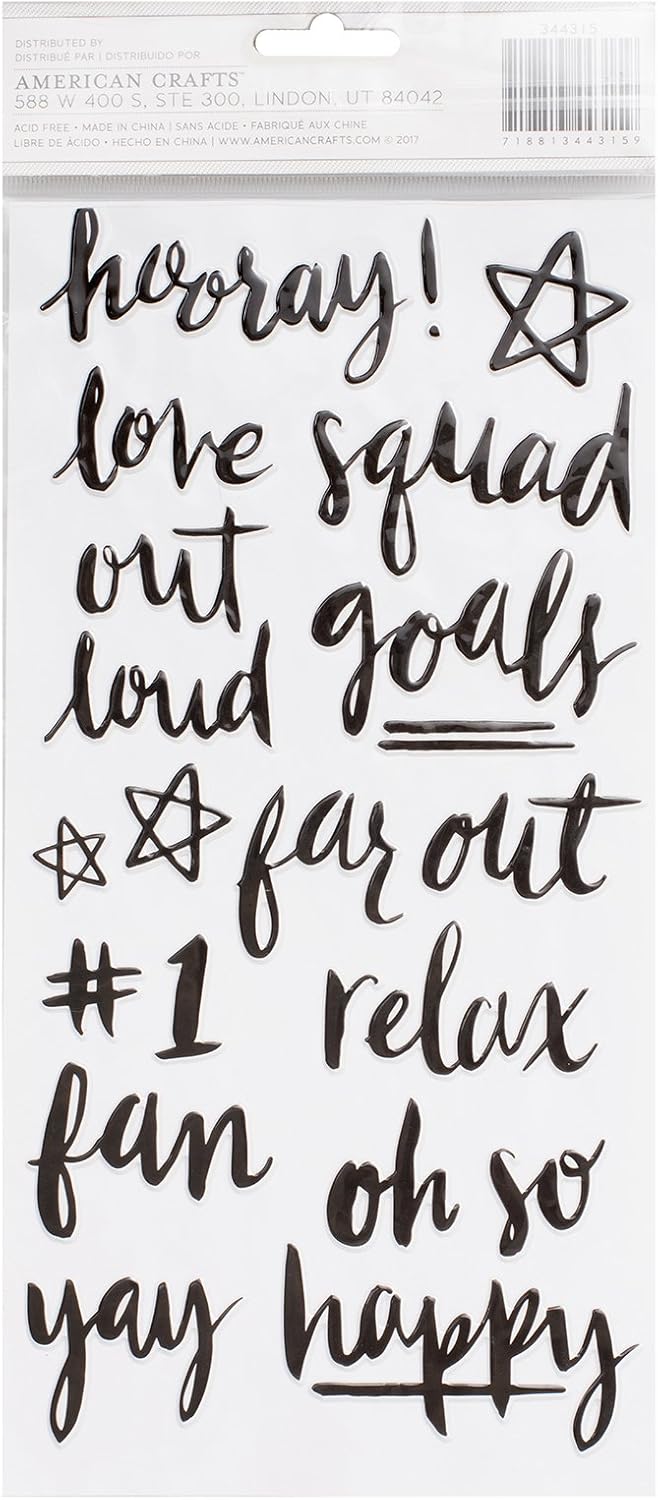 DISTRIBUTED BY
DISTRIBUÉ PAR | DISTRIBUIDO POR
AMERICAN CRAFTS™
588 W 400 S, STE 300, LINDON, UT 84042
ACID FREE • MADE IN CHINA | SANS ACIDE • FABRIQUÉ AUX CHINE
LIBRE DE ÁCIDO • HECHO EN CHINA | WWW.AMERICANCRAFTS.COM © 2017
344315
718813443159
hooray!
love
out
loud
squad
goals
far out
#1
fan
relax
oh so
happy
yay